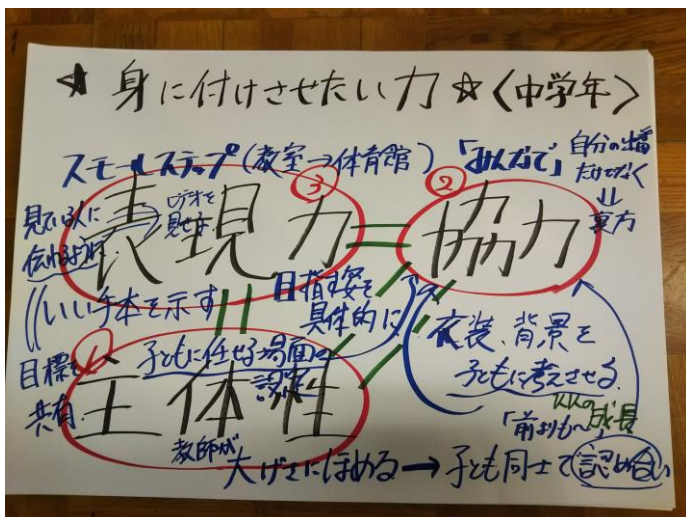 ☆ 身に付けさせたい力 ☆ 〈中学年〉
スモールステップ(教室→体育館)
「みんなで」
自分の出番
だけでなく
↓
裏方
③
②
表現力
協力
見ている人に
伝わるように
ビデオを
見せる
いい手本を示す
目指す姿を
具体的に
衣装、背景を
子どもに考えさせる
目標を
共有
①
主体性
子どもに任せる場面を
設定
教師が
大げさにほめる→子ども同士で認め合い
「前よりも〜
成長